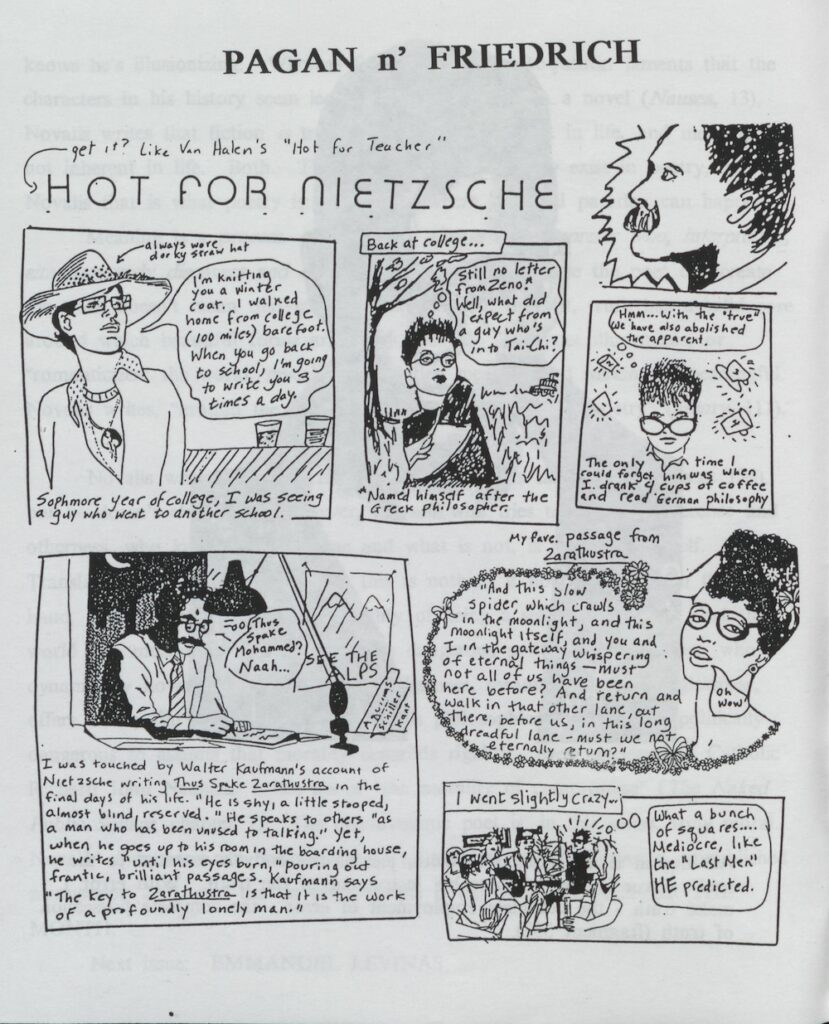 PAGAN n' FRIEDRICH
get it? Like Van Halen's "Hot for Teacher"
HOT FOR NIETZSCHE
always wore
dorky straw hat
I'm knitting
you a winter
coat. I walked
home from college
(100 miles) barefoot.
When you go back
to school, I'm going
to write you 3
times a day.
Sophmore year of college, I was seeing
a guy who went to another school.
Back at college...
Still no letter
from Zeno.*
Well, what did
I expect from
a guy who's
into Tai-Chi?
*Named himself after the
Greek philosopher.
Hmm... With the "true"
we have also abolished
the apparent.
The only time I
could forget him was when
I drank 4 cups of coffee
and read German philosophy
Thus
Spake
Mohammed?
Naah...
SEE THE
LPS
Schiller
Kant
I was touched by Walter Kaufmann's account of
Nietzsche writing Thus Spake Zarathustra in the
final days of his life. "He is shy, a little stooped,
almost blind, reserved." He speaks to others "as
a man who has been unused to talking." Yet,
when he goes up to his room in the boarding house,
he writes "until his eyes burn," pouring out
frantic, brilliant passages. Kaufmann says
"The key to Zarathustra is that it is the work
of a profoundly lonely man."
My fave. passage from
Zarathustra
"And this slow
spider, which crawls
in the moonlight, and this
moonlight itself, and you and
I in the gateway whispering
of eternal things — must
not all of us have been
here before? And return and
walk in that other lane, out
there, before us, in this long
dreadful lane - must we not
eternally return?"
Oh
wow!
I went slightly crazy...
What a bunch
of squares....
Mediocre, like
the "Last Men"
HE predicted.
Next issue: EMMANUEL LEVINAS